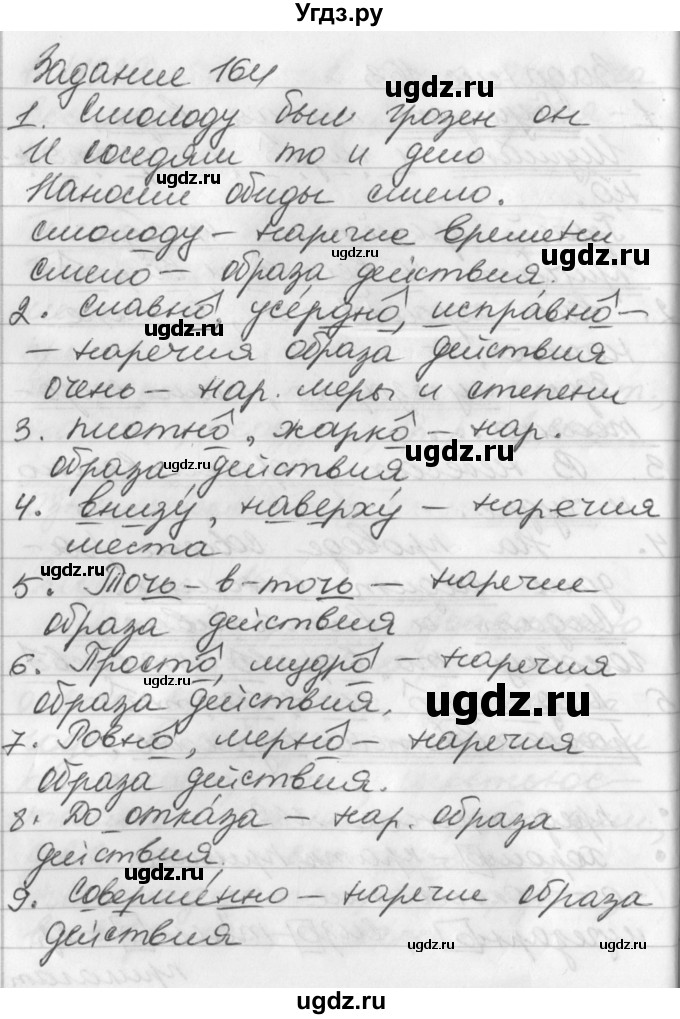 Угдз.ру
Задание 164
1. Смолоду был грозен он
И соседям то и дело
Наносил обиды смело.
смолоду – наречие времени
смело – образа действия.
2. славно, усердно, исправно –
– наречия образа действия
очень – нар. меры и степени
3. плотно, жарко – нар.
образа действия
4. внизу, наверху – наречия
места
5. Точь-в-точь – наречие
образа действия
6. Просто, мудро – наречия
образа действия.
7. Ровно, мерно – наречия
образа действия.
8. До отказа – нар. образа
действия
9. Совершенно – наречие образа
действия
ugdz.ru
ugdz.ru
ugdz.ru
ugdz.ru
ugdz.ru
ugdz.ru
ugdz.ru
ugdz.ru
ugdz.ru
ugdz.ru
ugdz.ru
ugdz.ru
ugdz.ru
ugdz.ru